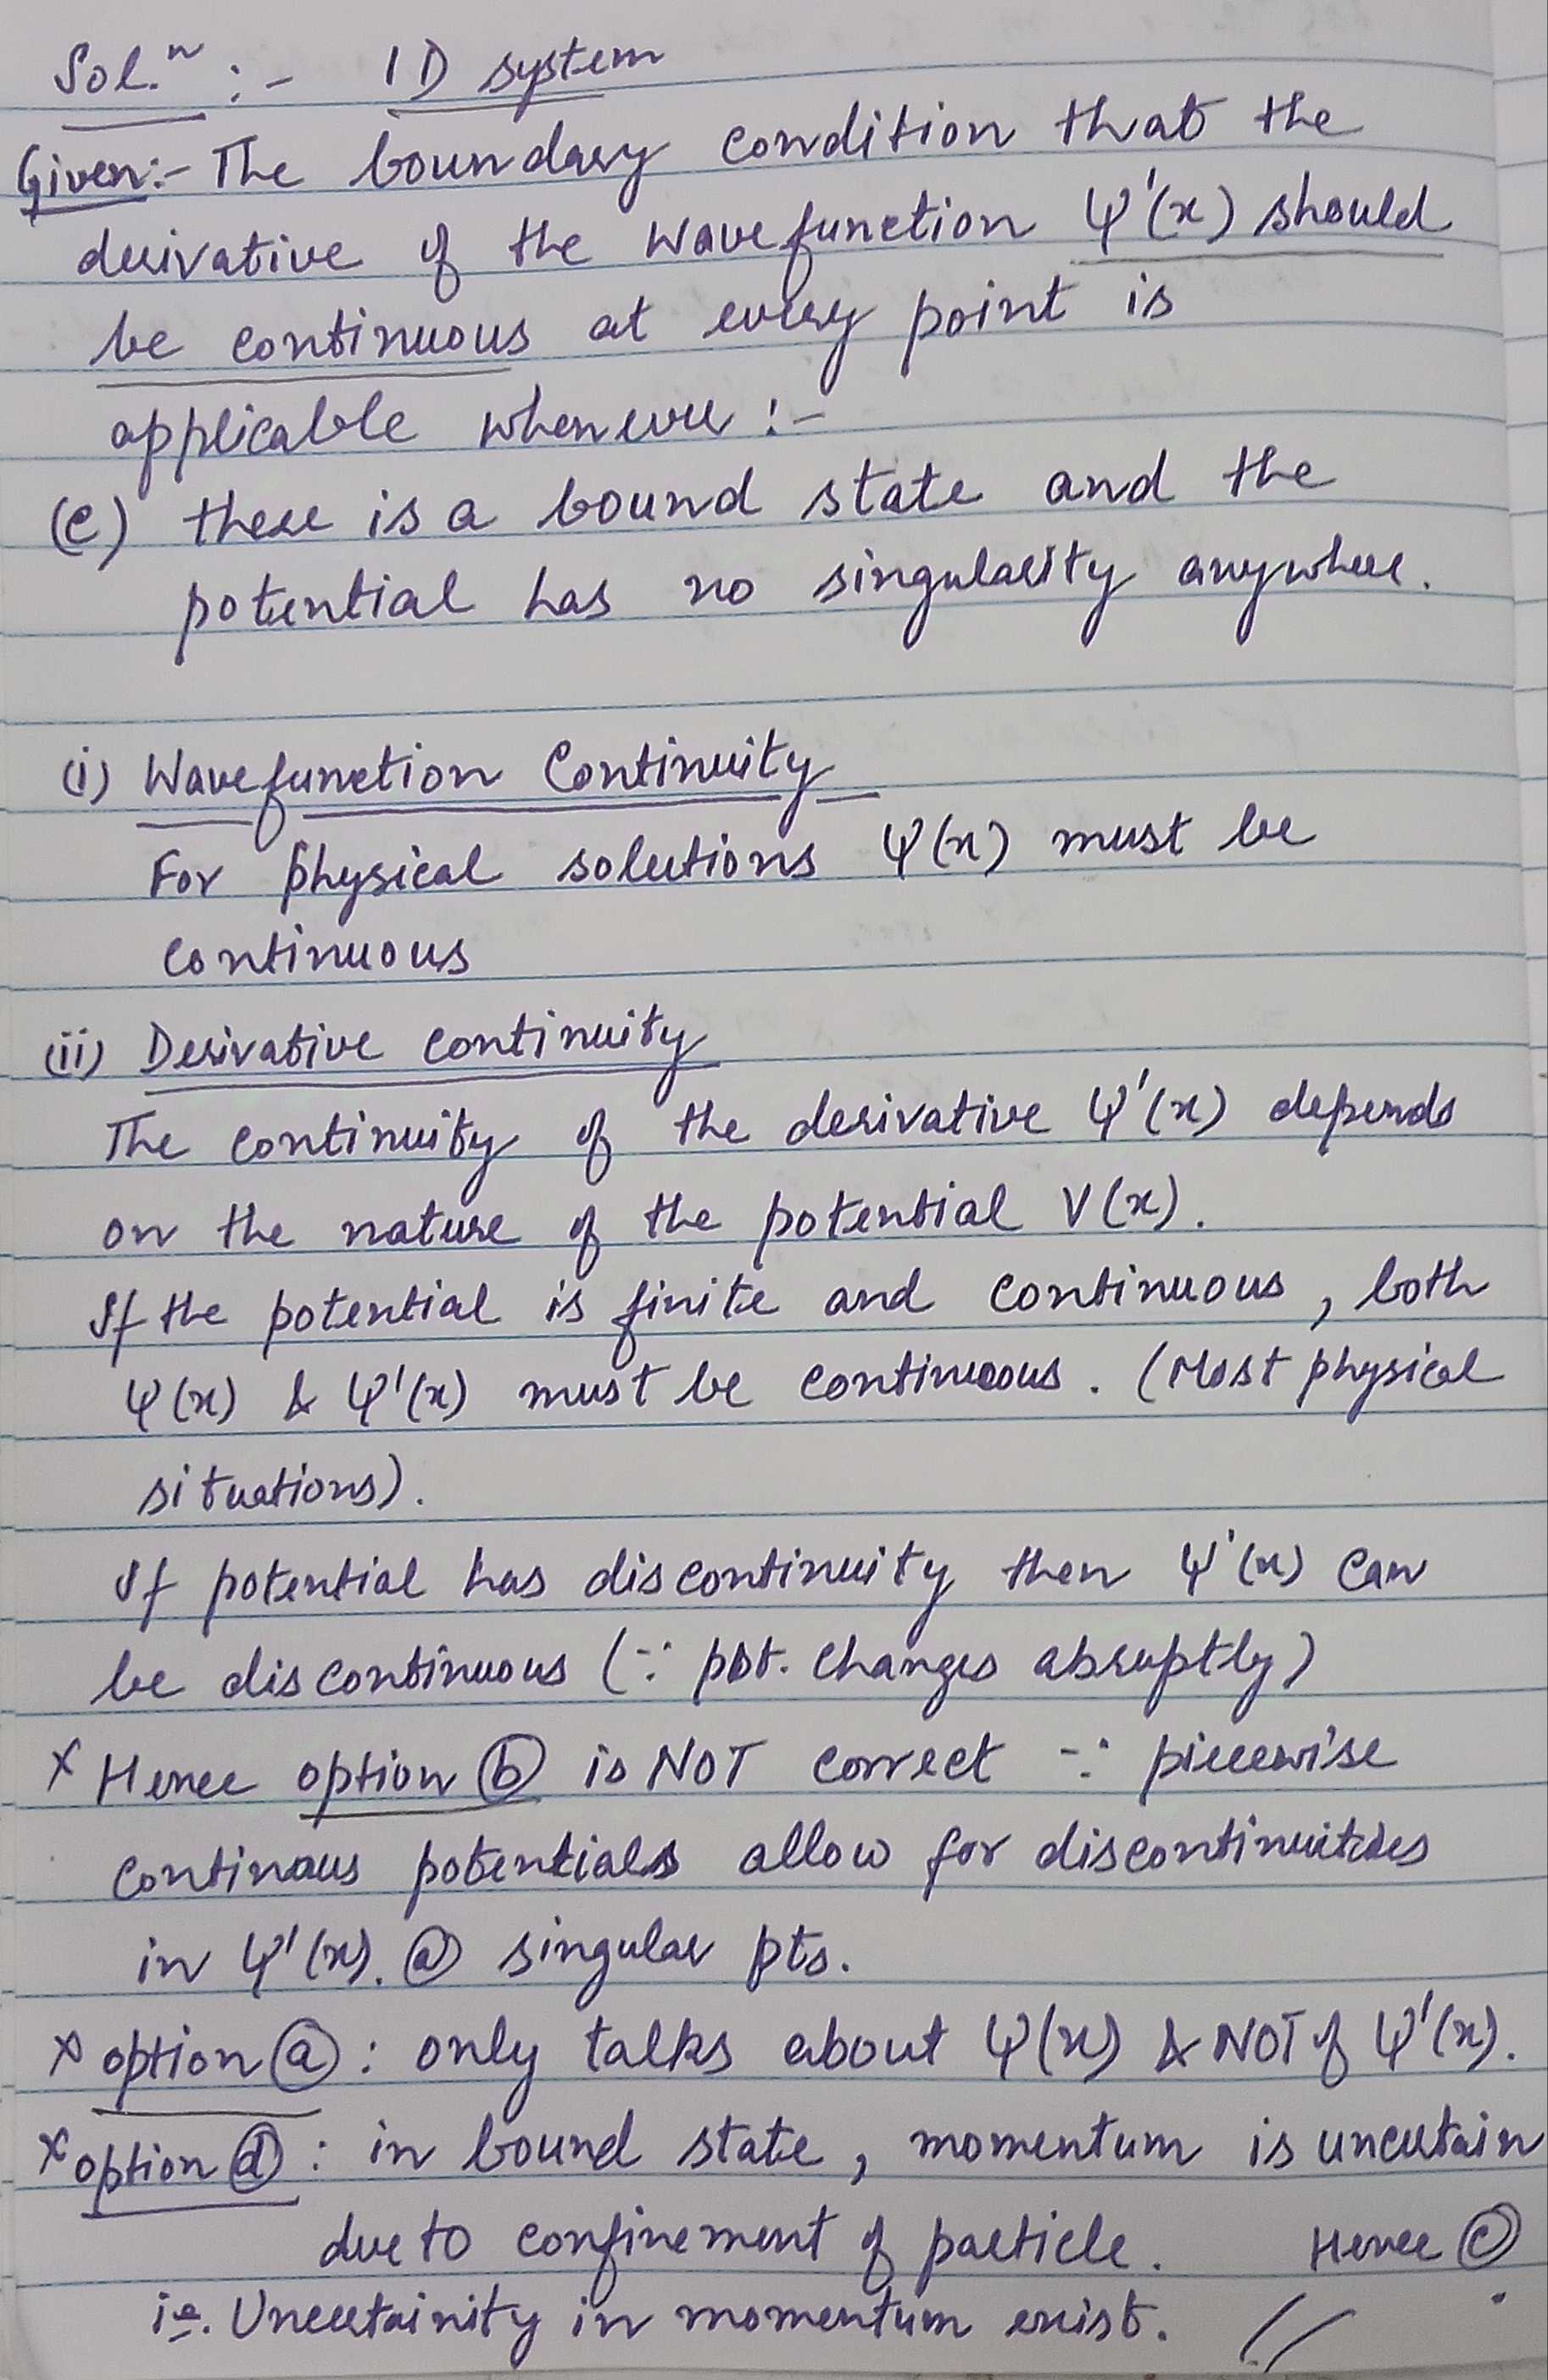 Sol.ⁿ :- 1D system
Given:- The boundary condition that the
derivative of the wavefunction ψ'(x) should
be continuous at every point is
applicable whenever :-
(c) there is a bound state and the
potential has no singularity anywhere.
(i) Wavefunction Continuity
For physical solutions ψ(x) must be
continuous
(ii) Derivative continuity
The continuity of the derivative ψ'(x) depends
on the nature of the potential V(x).
If the potential is finite and continuous, both
ψ(x) & ψ'(x) must be continuous. (Most physical
situations).
If potential has discontinuity then ψ'(x) can
be discontinuous (∵ pot. changes abruptly)
x Hence option ⓑ is NOT correct ∵ piecewise
continous potentials allow for discontinuities
in ψ'(x). @ singular pts.
x option ⓐ : only talks about ψ(x) & NOT of ψ'(x).
x option ⓓ : in bound state, momentum is uncertain
due to confinement of particle. Hence ⓒ.
i.e. Uncertainity in momentum exist. //